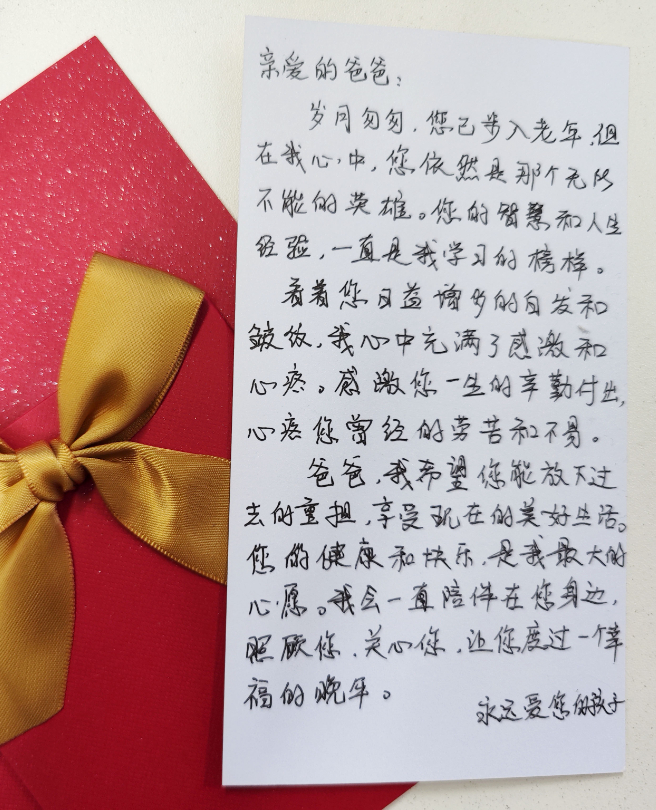 亲爱的爸爸：
岁月匆匆，您已步入老年，但
在我心中，您依然是那个无所
不能的英雄。您的智慧和人生
经验，一直是我学习的榜样。
看着您日益增多的白发和
皱纹，我心中充满了感激和
心疼。感激您一生的辛勤付出，
心疼您曾经的劳苦和不易。
爸爸，我希望您能放下过
去的重担，享受现在的美好生活。
您的健康和快乐，是我最大的
心愿。我会一直陪伴在您身边，
照顾您，关心您，让您度过一个幸
福的晚年。
永远爱您的孩子